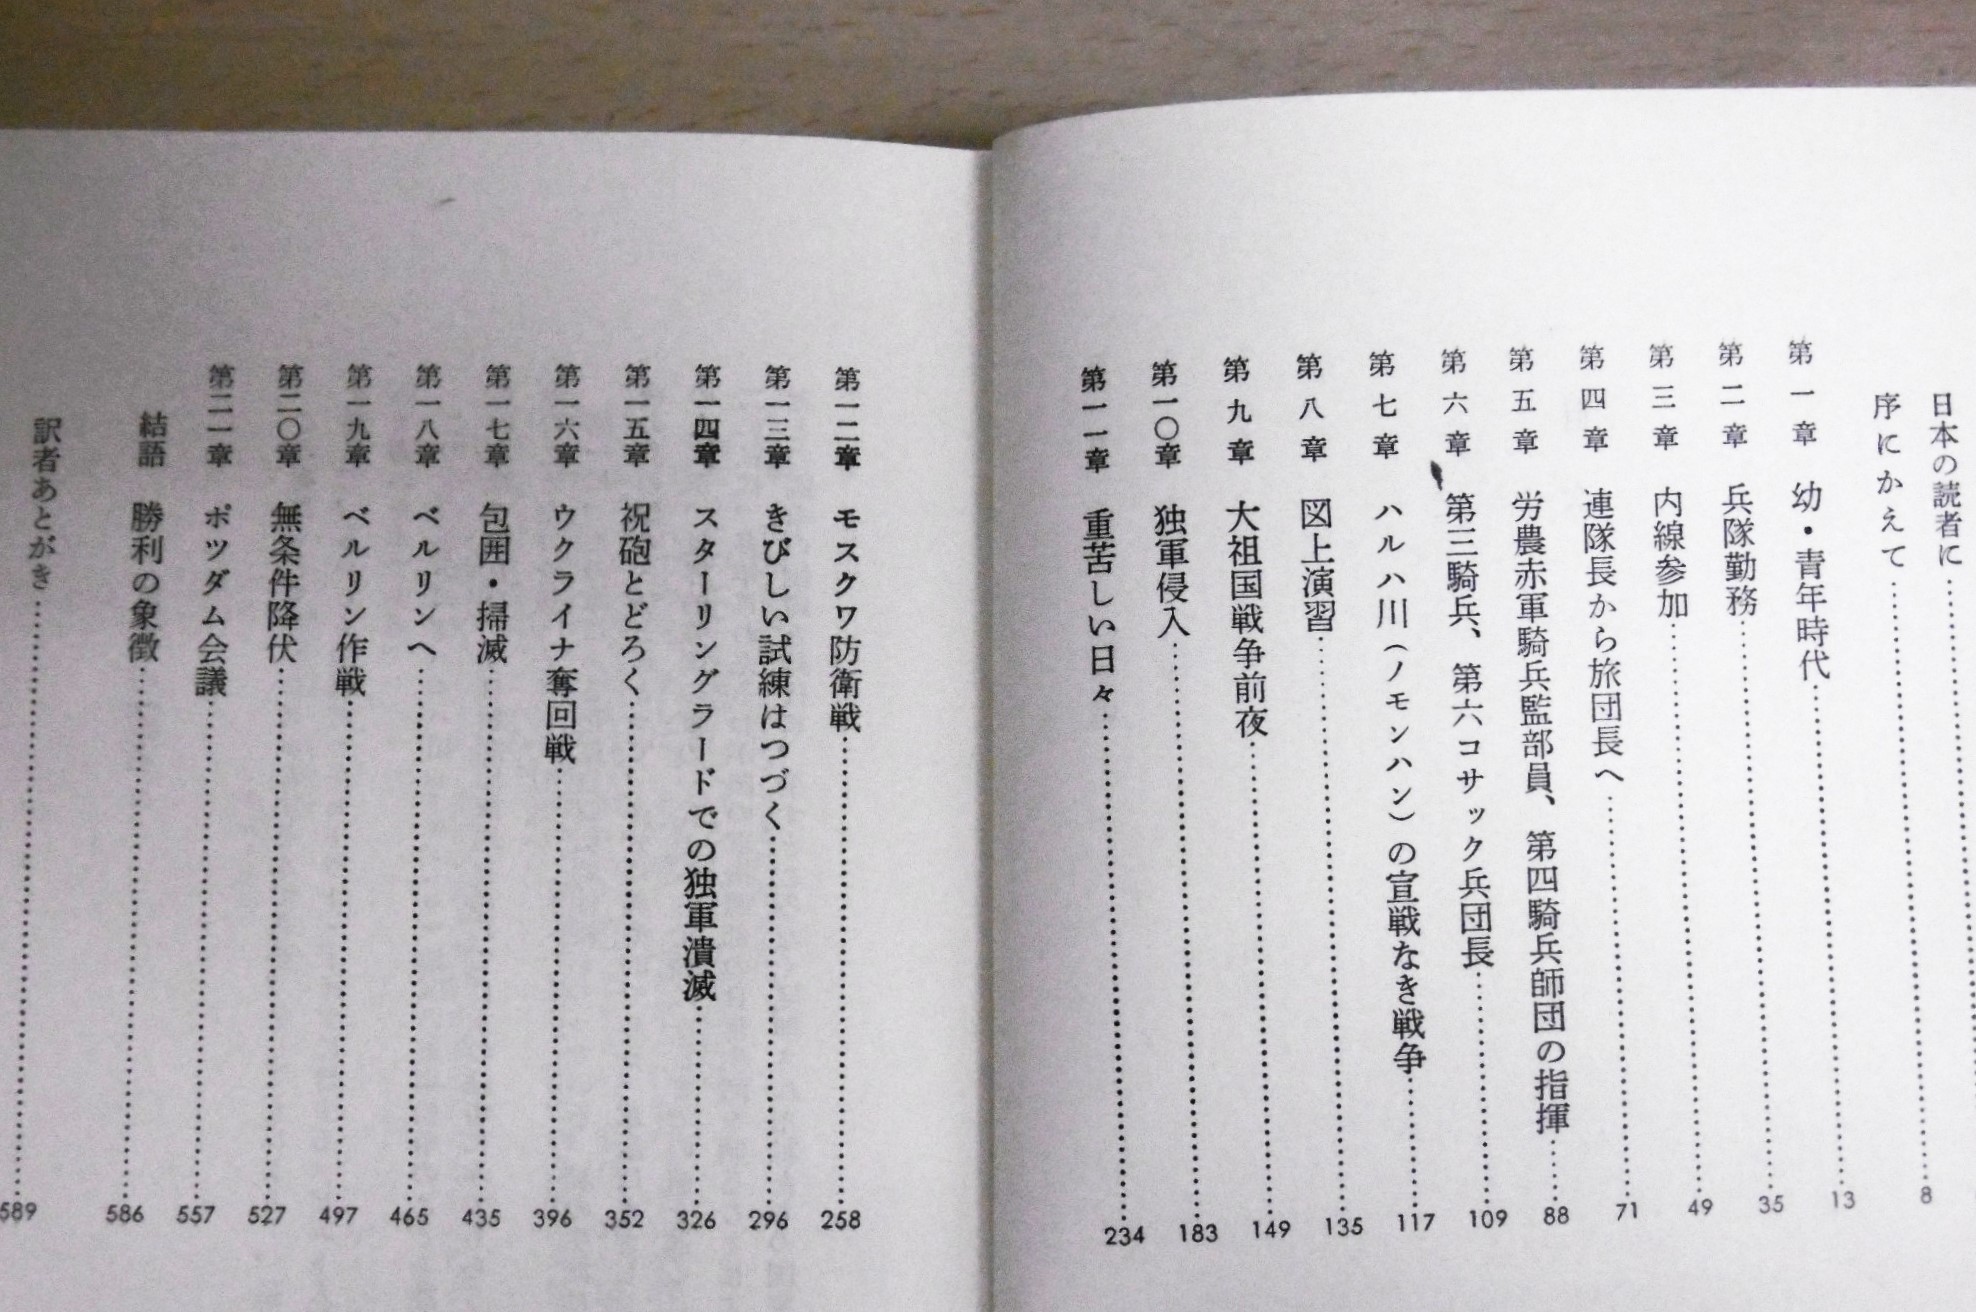 日本の読者に
序にかえて 8
第一章 幼・青年時代 13
第二章 兵隊勤務 35
第三章 内線参加 49
第四章 連隊長から旅団長へ 71
第五章 労農赤軍騎兵監部員、第四騎兵師団の指揮 88
第六章 第三騎兵、第六コサック兵団長 109
第七章 ハルハ川(ノモンハン)の宣戦なき戦争 117
第八章 図上演習 135
第九章 大祖国戦争前夜 149
第一〇章 独軍侵入 183
第一一章 重苦しい日々 234
第一二章 モスクワ防衛戦 258
第一三章 きびしい試練はつづく 296
第一四章 スターリングラードでの独軍潰滅 326
第一五章 祝砲とどろく 352
第一六章 ウクライナ奪回戦 396
第一七章 包囲・掃滅 435
第一八章 ベルリンへ 465
第一九章 ベルリン作戦 497
第二〇章 無条件降伏 527
第二一章 ポツダム会議 557
結語 勝利の象徴 586
訳者あとがき 589